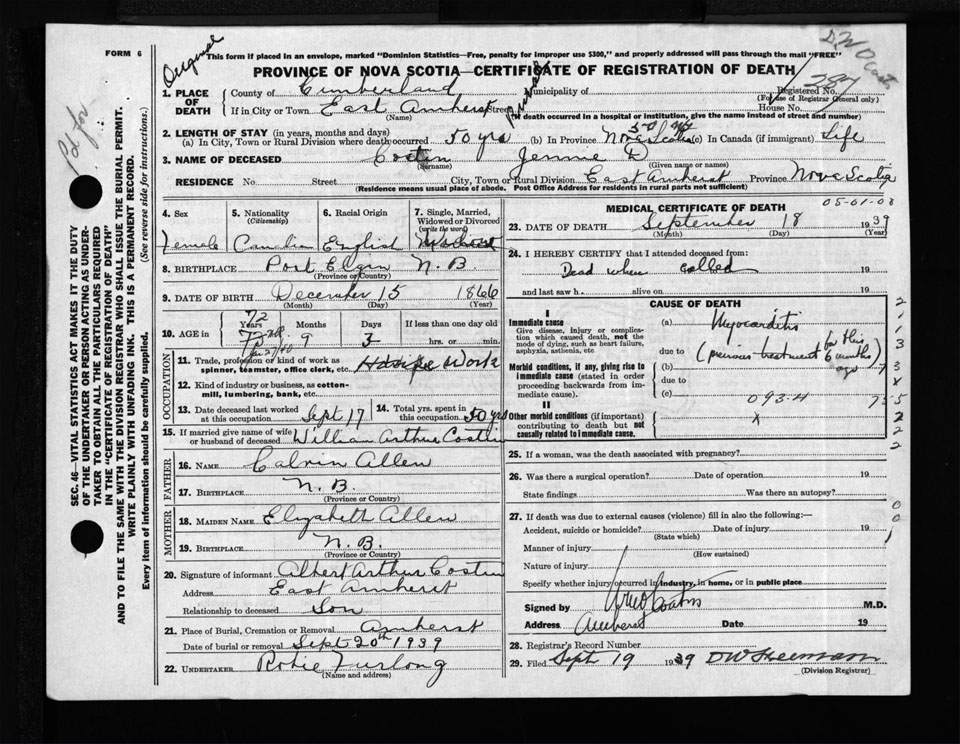 FORM 6
Original
This form if placed in an envelope, marked "Dominion Statistics—Free, penalty for improper use $300," and properly addressed will pass through the mail "FREE"
PROVINCE OF NOVA SCOTIA—CERTIFICATE OF REGISTRATION OF DEATH
1. PLACE OF DEATH
County of Cumberland Municipality of
Registered No. 287
(For use of Registrar General only)
If in City or Town East Amherst Street House No.
(Name) (If death occurred in a hospital or institution, give the name instead of street and number)
2. LENGTH OF STAY (in years, months and days)
(a) In City, Town or Rural Division where death occurred 50 yrs (b) In Province Nova Scotia (c) In Canada (if immigrant) Life
3. NAME OF DECEASED Costin Jennie D
(Surname) (Given name or names)
RESIDENCE No Street City, Town or Rural Division East Amherst Province Nova Scotia
(Residence means usual place of abode. Post Office Address for residents in rural parts not sufficient)
4. Sex
Female
5. Nationality
(Citizenship)
Canadian
6. Racial Origin
English
7. Single, Married, Widowed or Divorced
(write the word)
8. BIRTHPLACE Port Elgin N.B.
(Province or Country)
9. DATE OF BIRTH December 15 1866
(Month) (Day) (Year)
10. AGE in Years Months Days If less than one day old
72 9 3 hrs. or min.
OCCUPATION
11. Trade, profession or kind of work as spinner, teamster, office clerk, etc. House Work
12. Kind of industry or business, as cotton-mill, lumbering, bank, etc.
13. Date deceased last worked at this occupation Sept 17
14. Total yrs. spent in this occupation 50 yrs
15. If married give name of wife or husband of deceased William Arthur Costin
FATHER
16. NAME Calvin Allen
17. BIRTHPLACE N.B.
(Province or Country)
MOTHER
18. MAIDEN NAME Elizabeth Allen
19. BIRTHPLACE N.B.
(Province or Country)
20. Signature of informant Albert Arthur Costin
Address East Amherst
Relationship to deceased Son
21. Place of Burial, Cremation or Removal Amherst
Date of burial or removal Sept 20th 1939
22. UNDERTAKER Robie Furlong
(Name and address)
MEDICAL CERTIFICATE OF DEATH
05-01-03
23. DATE OF DEATH September 18 1939
(Month) (Day) (Year)
24. I HEREBY CERTIFY that I attended deceased from:
Dead when called 19
and last saw h alive on 19
CAUSE OF DEATH
I
Immediate cause
Give disease, injury or complication which caused death, not the mode of dying, such as heart failure, asphyxia, asthenia, etc
(a) Myocarditis
due to (previous treatment for this 6 months ago)
Morbid conditions, if any, giving rise to immediate cause (stated in order proceeding backwards from immediate cause).
(b)
due to
(c) 093-4
II
Other morbid conditions (if important) contributing to death but not causally related to immediate cause.
x
25. If a woman, was the death associated with pregnancy?
26. Was there a surgical operation? Date of operation 19
State findings Was there an autopsy?
27. If death was due to external causes (violence) fill in also the following:—
Accident, suicide or homicide? Date of injury 19
(State which)
Manner of injury
(How sustained)
Nature of injury
Specify whether injury occurred in industry, in home, or in public place
Signed by M.D.
Address Amherst Date 19
28. Registrar's Record Number
29. Filed Sept 19 1939
(Division Registrar)
SEC. 46—VITAL STATISTICS ACT MAKES IT THE DUTY OF THE UNDERTAKER OR PERSON ACTING AS UNDERTAKER TO OBTAIN ALL THE PARTICULARS REQUIRED IN THE "CERTIFICATE OF REGISTRATION OF DEATH" AND TO FILE THE SAME WITH THE DIVISION REGISTRAR WHO SHALL ISSUE THE BURIAL PERMIT.
WRITE PLAINLY WITH UNFADING INK. THIS IS A PERMANENT RECORD.
Every item of information should be carefully supplied. (See reverse side for instructions.)